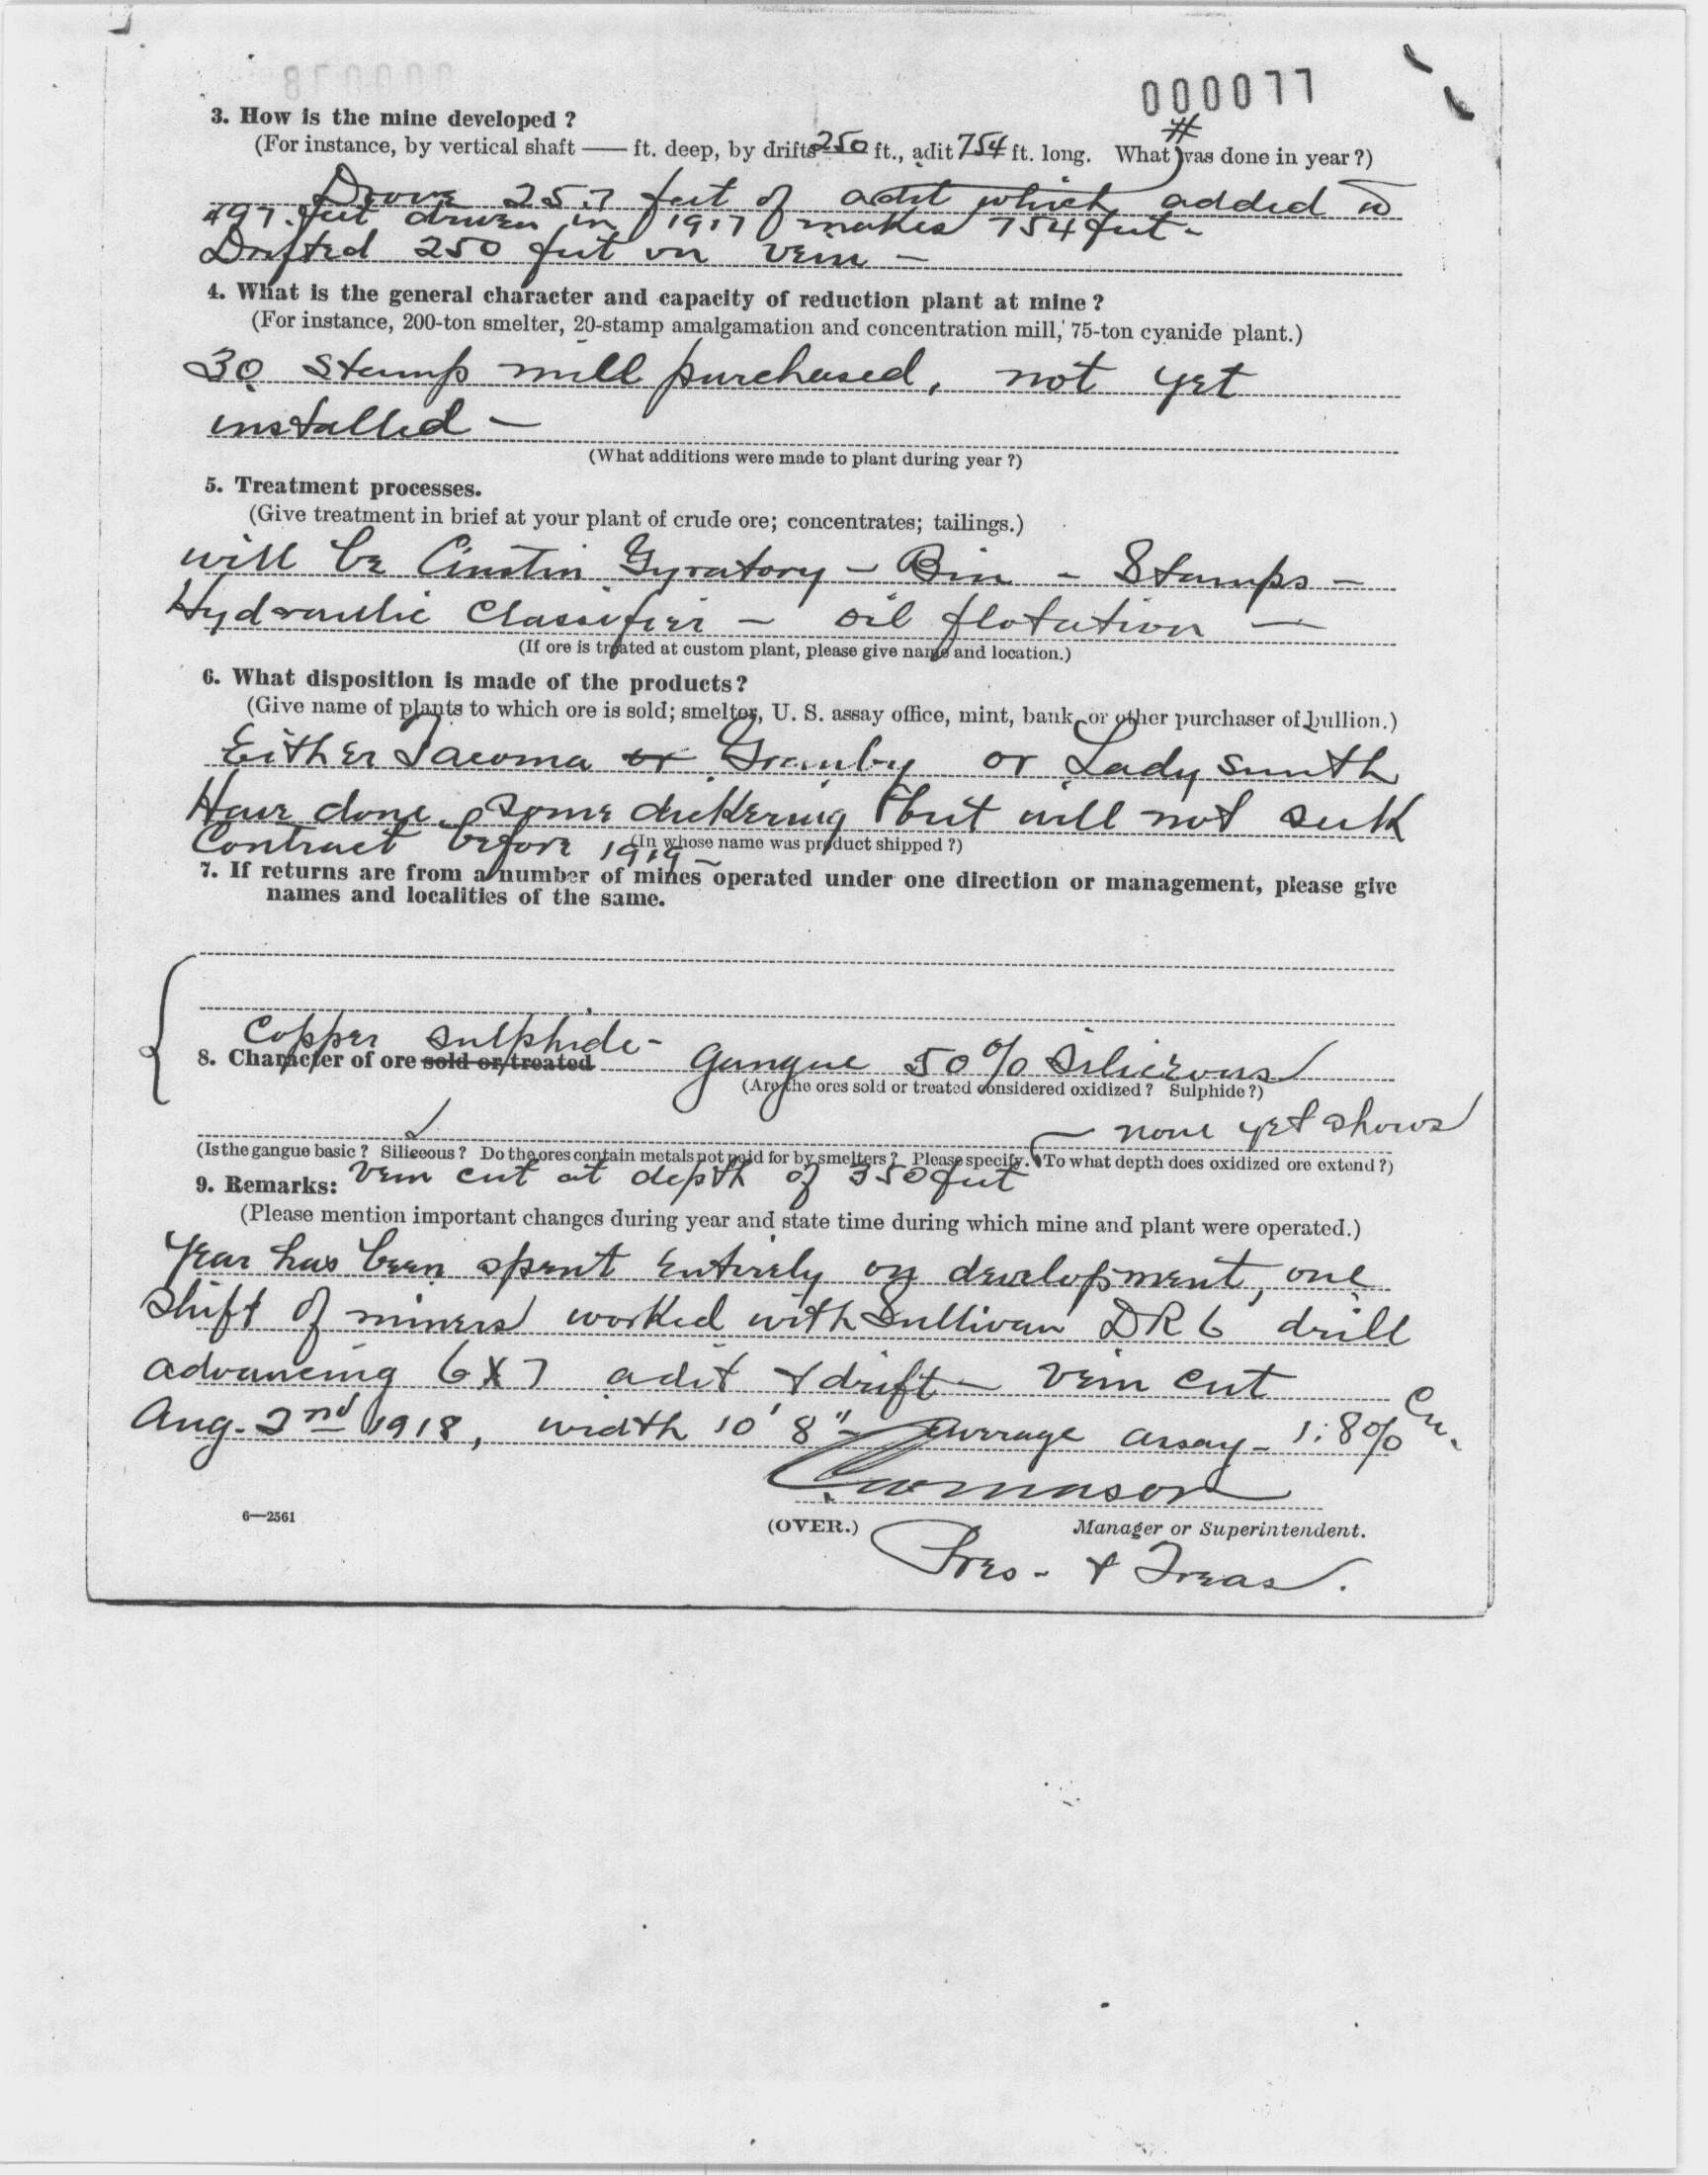 000077
3. How is the mine developed?
(For instance, by vertical shaft —— ft. deep, by drifts 250 ft., adit 754 ft. long. What was done in year?)
#
Drove 257 feet of adit which added to
497 feet driven in 1917 makes 754 feet -
Drifted 250 feet on vein -
4. What is the general character and capacity of reduction plant at mine?
(For instance, 200-ton smelter, 20-stamp amalgamation and concentration mill, 75-ton cyanide plant.)
30 stamp mill purchased, not yet
installed -
(What additions were made to plant during year?)
5. Treatment processes.
(Give treatment in brief at your plant of crude ore; concentrates; tailings.)
will be Austin Gyratory - Bin - Stamps -
Hydraulic Classifier - oil flotation -
(If ore is treated at custom plant, please give name and location.)
6. What disposition is made of the products?
(Give name of plants to which ore is sold; smelter, U. S. assay office, mint, bank or other purchaser of bullion.)
Either Tacoma or Granby or Ladysmith
Have done some dickering but will not seek
Contract before 1919 -
(In whose name was product shipped?)
7. If returns are from a number of mines operated under one direction or management, please give
names and localities of the same.
Copper sulphide -
8. Character of ore sold or treated Gangue 50% Siliceous
(Are the ores sold or treated considered oxidized? Sulphide?)
none yet shows
(Is the gangue basic? Siliceous? Do the ores contain metals not paid for by smelters? Please specify. To what depth does oxidized ore extend?)
9. Remarks: Vein cut at depth of 350 feet
(Please mention important changes during year and state time during which mine and plant were operated.)
Year has been spent entirely on development, one
shift of miners worked with Sullivan DR6 drill
advancing 6x7 adit & drift - vein cut
Aug. 2nd 1918, width 10' 8" - average assay - 1.8% Cu.
6—2561
(OVER.)
Manager or Superintendent.
Pres - & Treas.